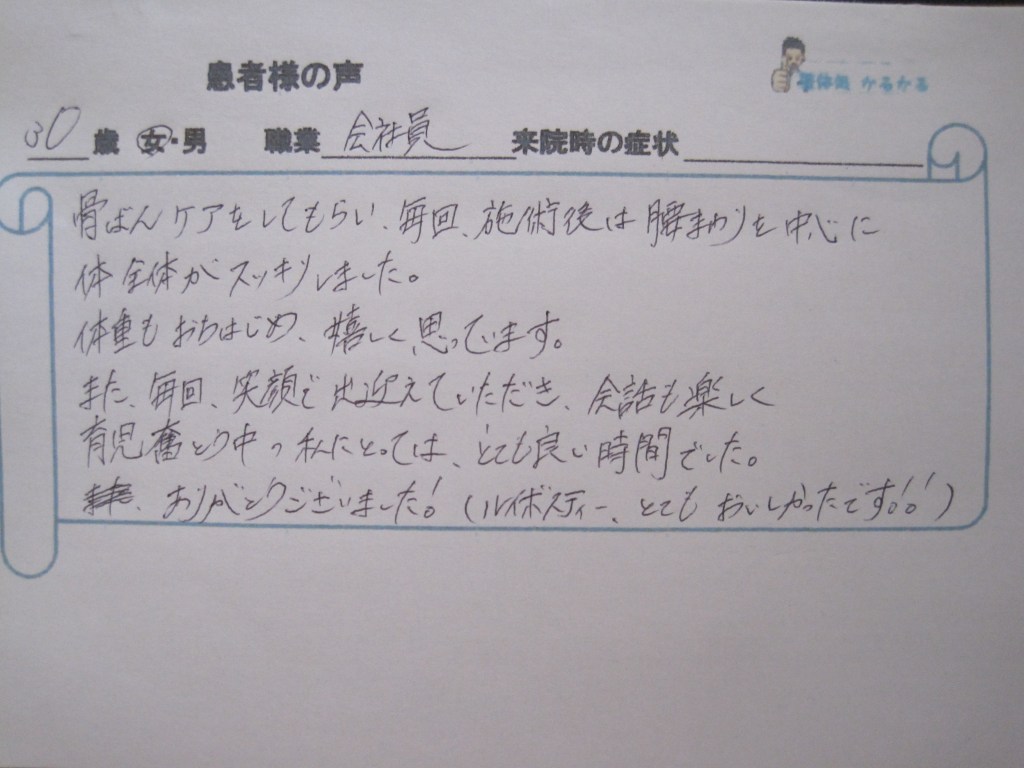 患者様の声
整体処 かるかる
30 歳 女・男 職業 会社員 来院時の症状
骨ばんケアをしてもらい、毎回、施術後は腰まわりを中心に
体全体がスッキリしました。
体重もおちはじめ、嬉しく思っています。
また、毎回、笑顔で出迎えていただき、会話も楽しく
育児奮とう中の私にとっては、とても良い時間でした。
ありがとうございました! (ルイボスティー、とてもおいしかったです!!)